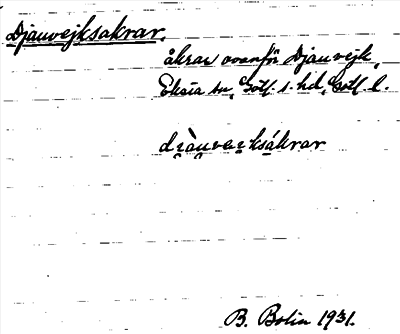 Djauvejksakrar.
åkrar ovanför Djauvejk,
Eksta sn, Gotl. s. hd, Gotl. l.
djàuvejksákrar
B. Bolin 1931.